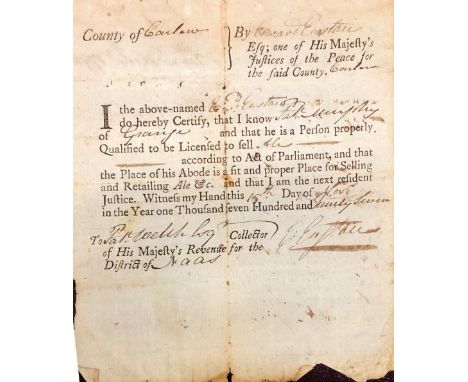 County of Carlow } By Edward Eustace
Esq; one of His Majesty's
Justices of the Peace for
the said County. Carlow
I the above-named E. Eustace
do hereby Certify, that I know Patk Murphy
of Grange and that he is a Person properly
Qualified to be Licensed to sell Ale
according to Act of Parliament, and that
the Place of his Abode is a fit and proper Place for Selling
and Retailing Ale &c. and that I am the next resident
Justice. Witness my Hand this Day of Novr
in the Year one Thousand seven Hundred and ninety seven
To Patk Welsh Esqr Collector
of His Majesty's Revenue for the
District of Naas
E. Eustace